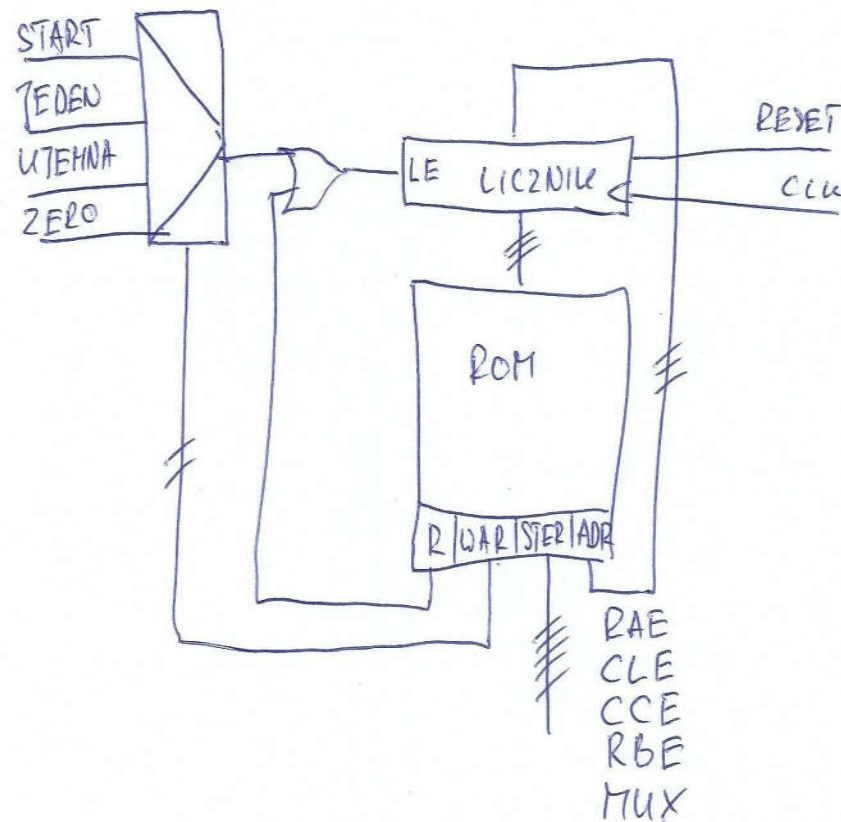 START
JEDEN
UJEMNA
ZERO
LE LICZNIK
RESET
CLK
ROM
R WAR STER ADR
RAE
CLE
CCE
RBE
MUX